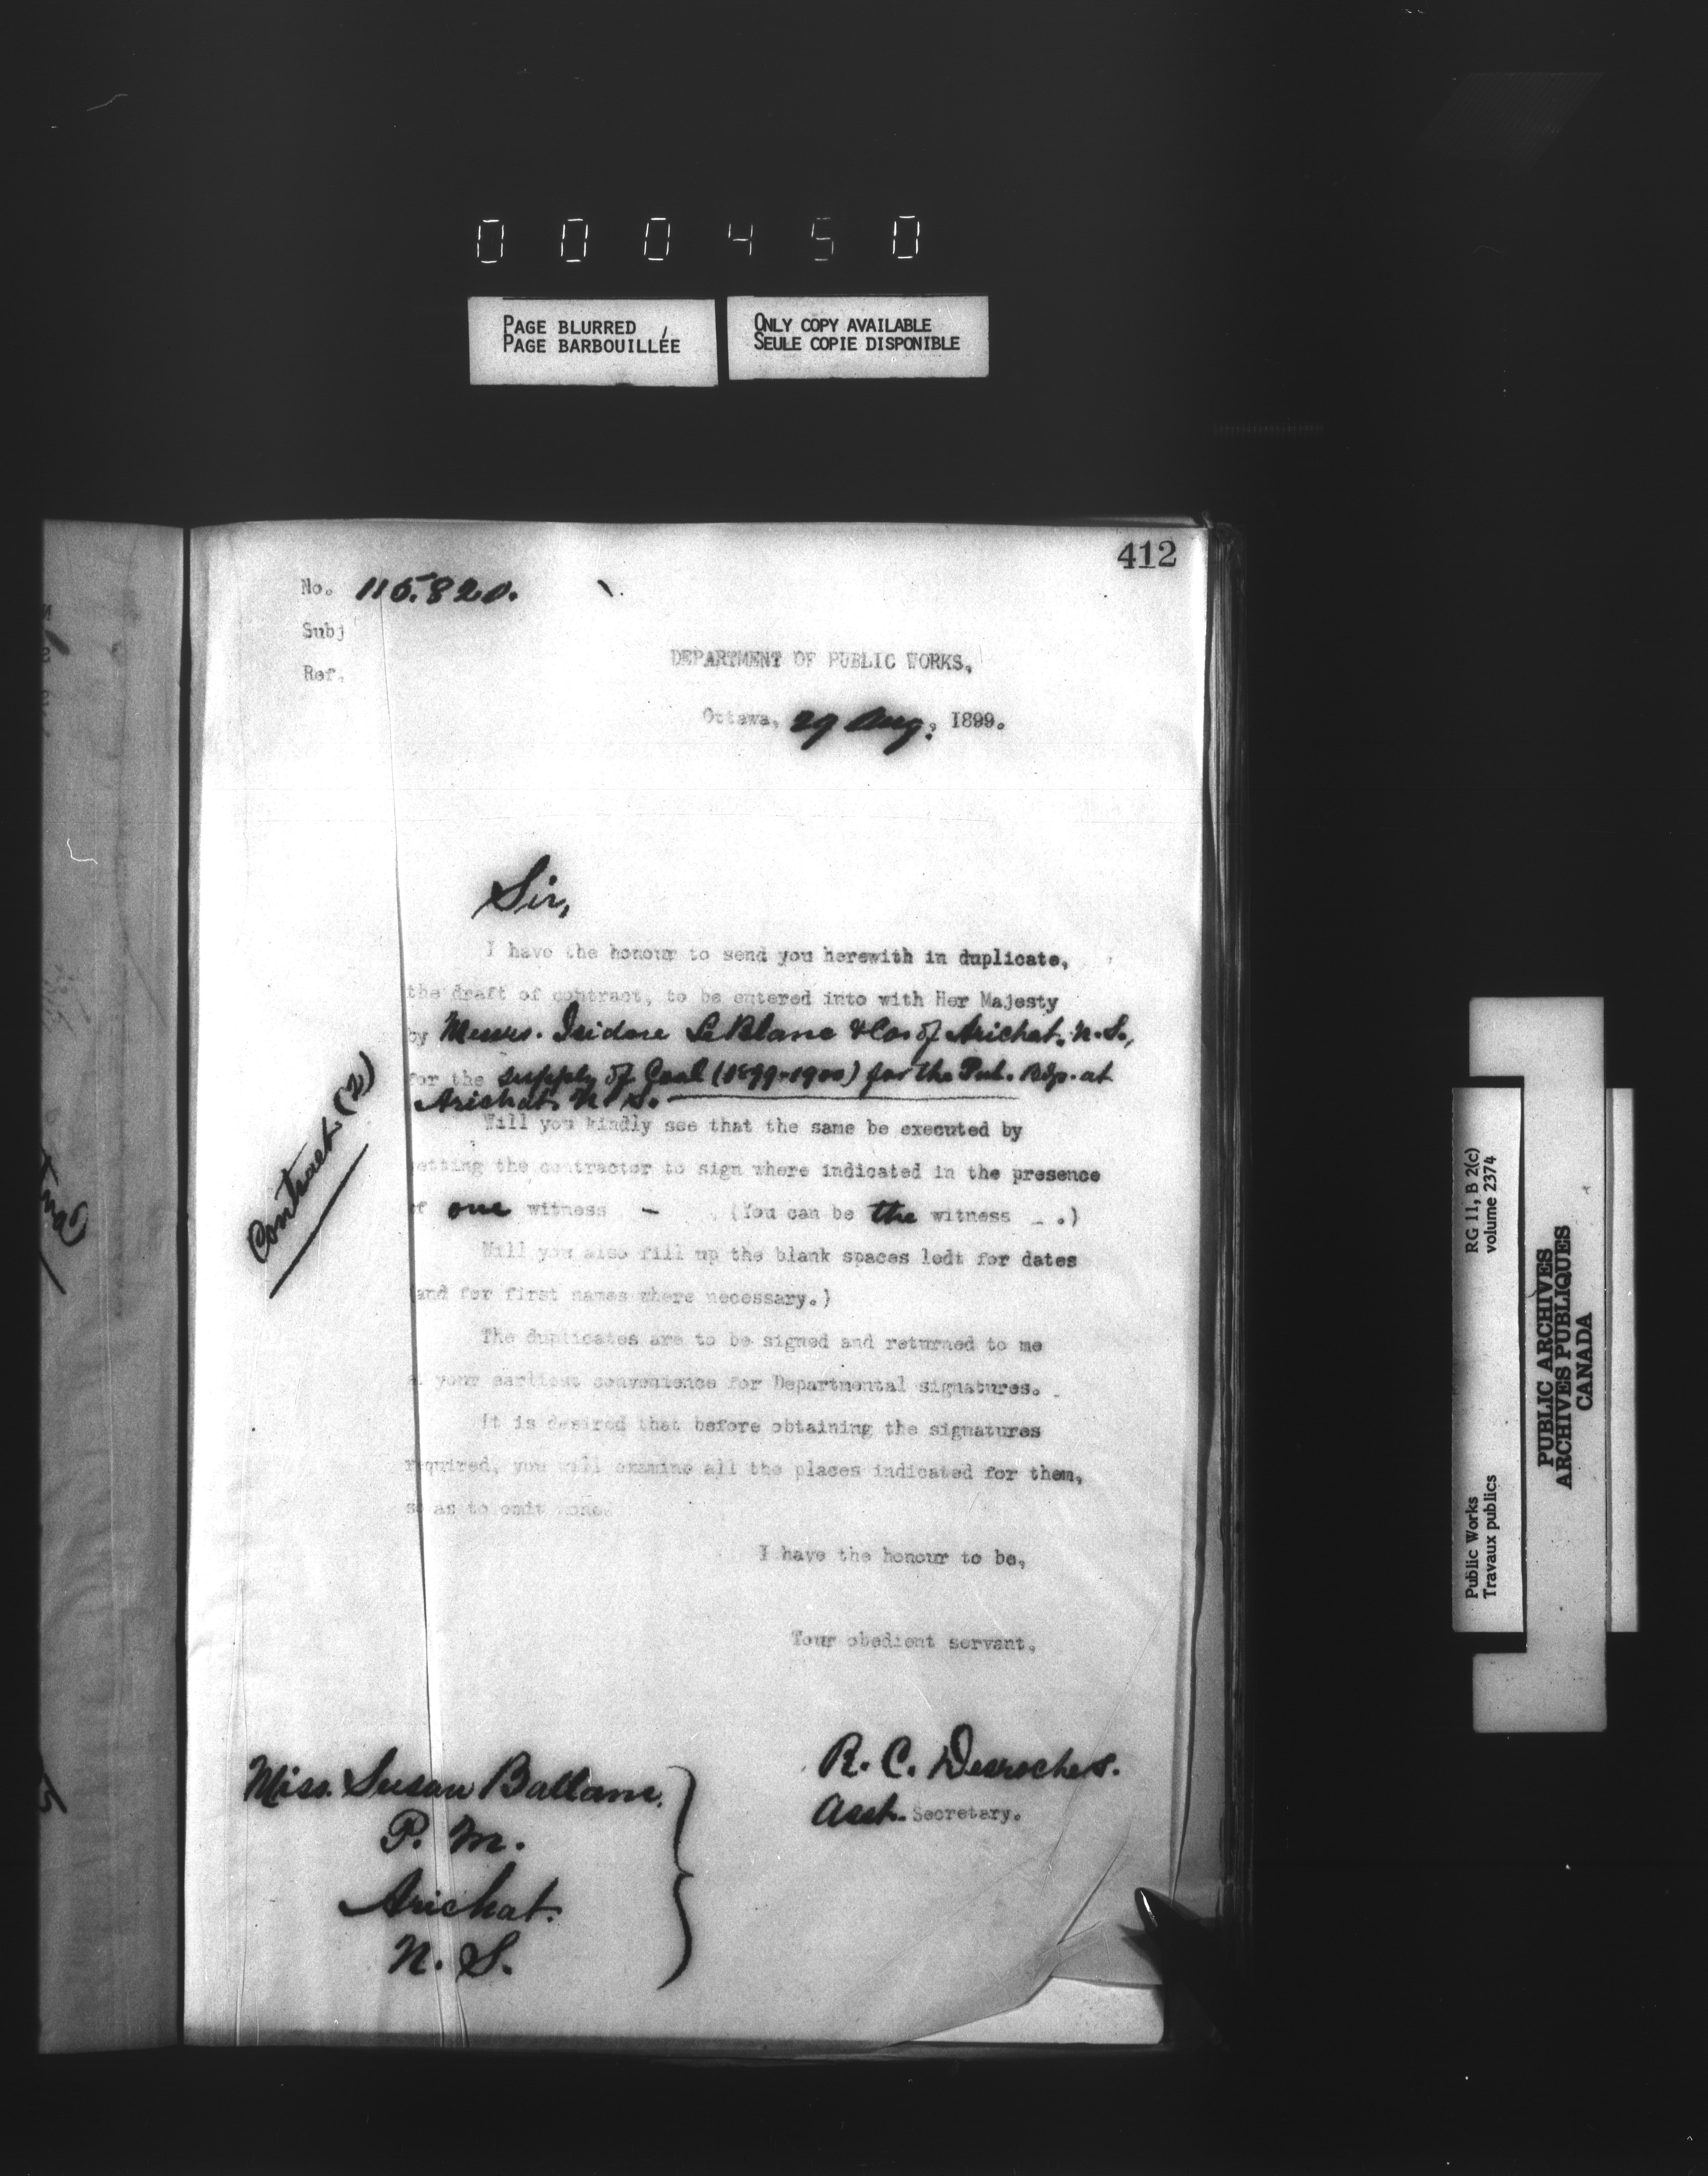 0 0 0 4 5 0
PAGE BLURRED
PAGE BARBOUILLÉE
ONLY COPY AVAILABLE
SEULE COPIE DISPONIBLE
412
No. 115.820.
Subj
Ref.
DEPARTMENT OF PUBLIC WORKS,
Ottawa, 29 Aug, 1899.
Sir,
I have the honour to send you herewith in duplicate,
the draft of contract, to be entered into with Her Majesty
by Messrs. Isidore LeBlanc & Co. of Arichat, N.S.,
for the supply of Coal (1899-1900) for the Pub. Bdg. at
Arichat, N.S.
Will you kindly see that the same be executed by
getting the contractor to sign where indicated in the presence
of one witness - (You can be the witness _ .)
Will you also fill up the blank spaces ledt for dates
(and for first names where necessary.)
The duplicates are to be signed and returned to me
a your earliest convenience for Departmental signatures.
It is desired that before obtaining the signatures
required, you will examine all the places indicated for them,
so as to omit none.
Contract (2)
I have the honour to be,
Your obedient servant,
R. C. Desrochers.
Asst. Secretary.
Miss. Susan Ballam.
P. M.
Arichat.
N. S.
RG 11, B 2(c)
volume 2374
Public Works
Travaux publics
PUBLIC ARCHIVES
ARCHIVES PUBLIQUES
CANADA